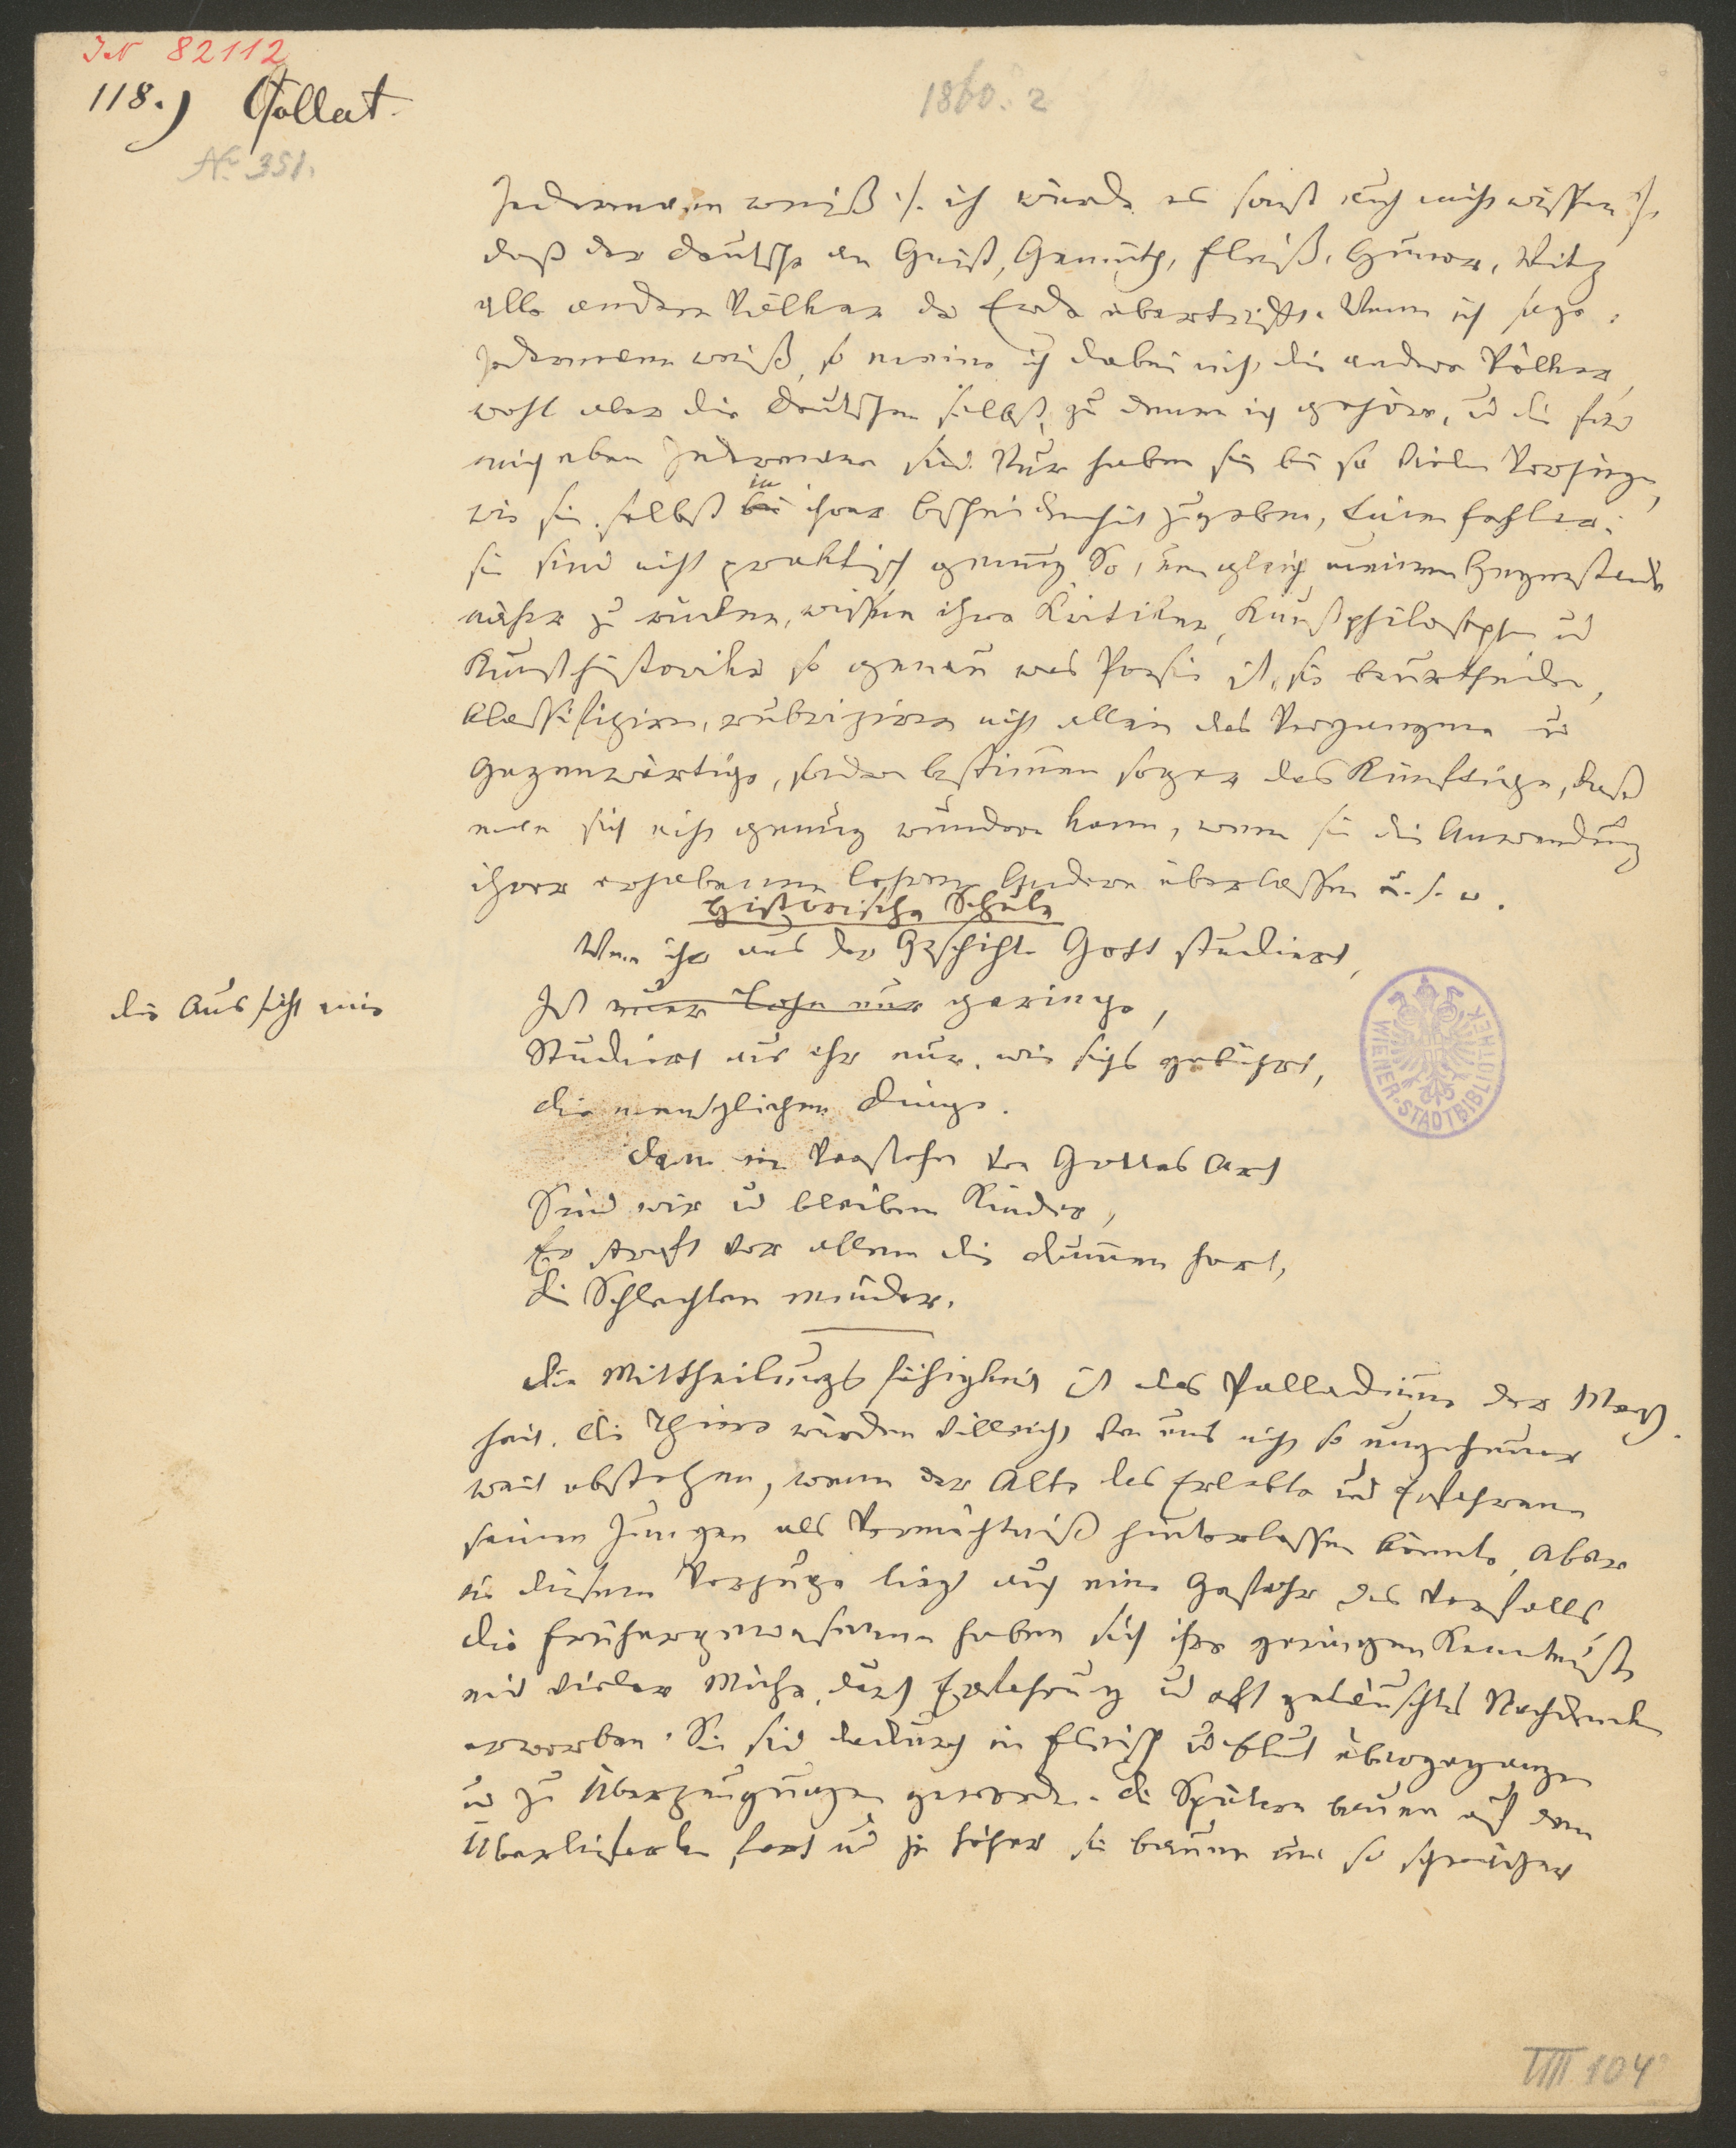 IN 82112
118.) Collat.
No 351.
1860. 2
Jedermann weiß /: ich würde es sonst auch nicht wissen :/
daß der Deutsche an Geist, Gemüth, Fleiß, Humor, Witz
alle andern Völker der Erde übertrifft. Wenn ich sage:
Jedermann weiß, so meine ich dabei nicht die andern Völker,
wohl aber die Deutschen selbst, zu denen ich gehöre, und die für
mich eben Jedermann sind. Nur haben sie bei so vielen Vorzügen,
wie sie selbst bei in ihrer Bescheidenheit zugeben, Einen Fehler:
sie sind nicht praktisch genug. So, um gleich meinem Gegenstande
näher zu rücken, wissen ihre Kritiker, Kunstphilosophen und
Kunsthistoriker so genau was Poesie ist, sie beurtheilen,
klassifiziren, rubriziren nicht allein das Vergangene und
Gegenwärtige, sondern bestimmen sogar das Künftige, daß
man sich nicht genug wundern kann, wenn sie die Anwendung
ihrer erhabenen Lehren Andern überlassen u. s. w.
Historische Schule
Wenn ihr aus der Geschichte Gott studiert,
die Aussicht nur
Ist euer Lohn nur geringe,
Studiert aus ihr nur, wie sichs gebührt,
die menschlichen Dinge.
Denn im Verstehn von Gottes Art
Sind wir und bleiben Kinder,
Er straft vor allem die Dummen hart,
Die Schlechten minder.
Die Mittheilungsfähigkeit ist das Palladium der Mensch-
heit. Die Thiere würden vielleicht von uns nicht so ungeheuer
weit abstehen, wenn der Alte das Erlebte und Erfahrene
seinen Jungen als Vermächtniß hinterlassen könnte. Aber
in diesem Vorzuge liegt auch eine Gefahr des Verfalls.
Die Frühergewesenen haben sich ihre geringen Kenntnisse
mit vieler Mühe, durch Erfahrung und oft getäuschtes Nachdenken
erworben. Sie sind dadurch in Fleisch und Blut übergegangen
und zu Überzeugungen geworden. Die Spätern bauen auf dem
Überlieferten fort und je höher sie bauen um so schwächer
WIENER STADTBIBLIOTHEK
VIII 104